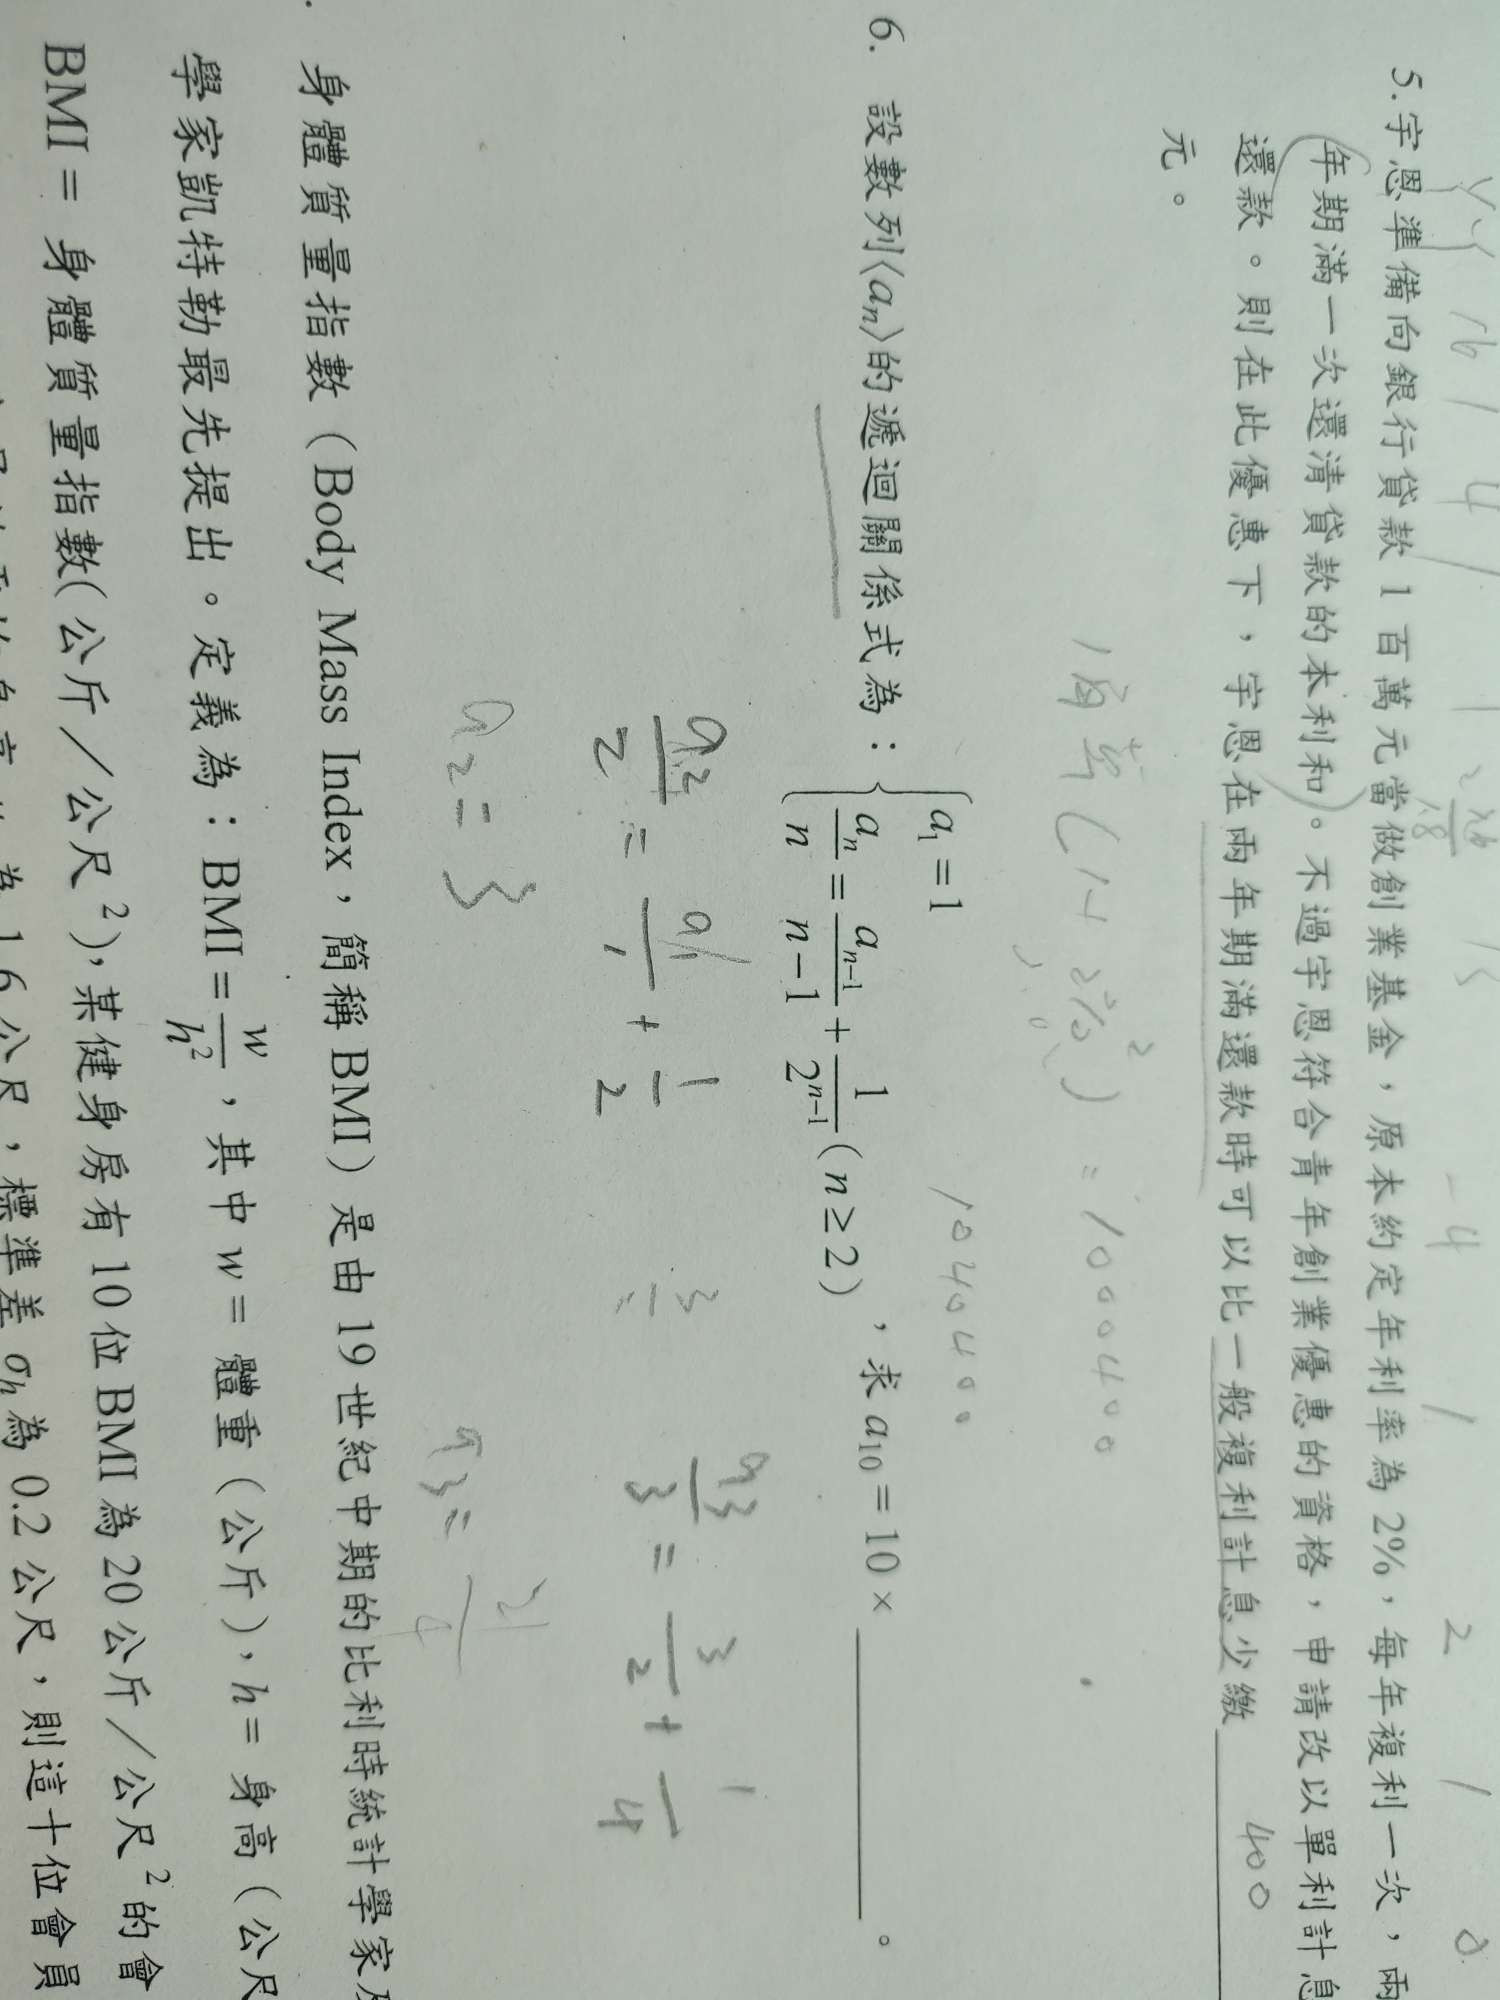 5. 宇恩準備向銀行貸款 1 百萬元當做創業基金，原本約定年利率為 2%，每年複利一次，兩
年期滿一次還清貸款的本利和。不過宇恩符合青年創業優惠的資格，申請改以單利計息
還款。則在此優惠下，宇恩在兩年期滿還款時可以比一般複利計息少繳 400
元。
= 1000400
1040400
6. 設數列⟨aₙ⟩的遞迴關係式為：{ a₁ = 1
aₙ/n = aₙ₋₁/(n − 1) + 1/2ⁿ⁻¹ (n ≥ 2) ，求 a₁₀ = 10 × ＿＿＿＿。
a₂/2 = a₁/1 + 1/2
a₃/3 = 3/2 + 1/4
a₂ = 3
a₃ = 21/4
身體質量指數（Body Mass Index，簡稱 BMI）是由 19 世紀中期的比利時統計學家及
學家凱特勒最先提出。定義為：BMI = w/h²，其中 w = 體重（公斤），h = 身高（公尺
BMI = 身體質量指數(公斤／公尺²)，某健身房有 10 位 BMI 為 20 公斤／公尺²的會
為 1.6 公尺，標準差 σₕ為 0.2 公尺，則這十位會員